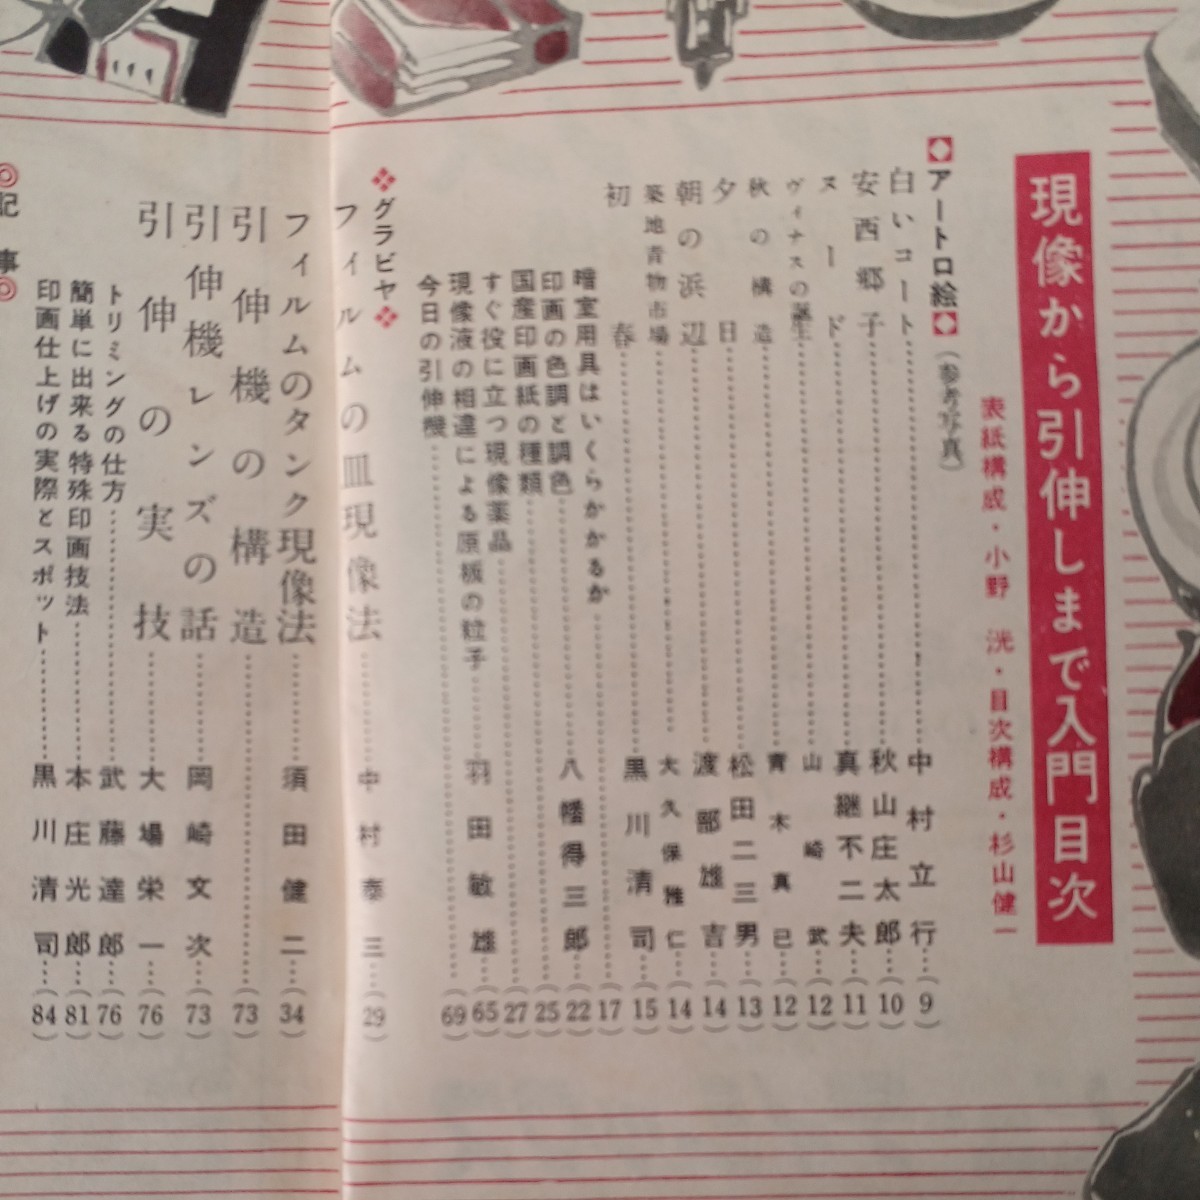 現像から引伸しまで入門目次
表紙構成・小野 洸・目次構成・杉山健一
◆アート口絵◆(参考写真)
白いコート……中村立行…(9)
安西郷子……秋山庄太郎…(10)
ヌード……真継不二夫…(11)
ヴィナスの誕生……山崎武…(12)
秋の構造……青木真巳…(12)
夕日……松田二三男…(13)
朝の浜辺……渡部雄吉…(14)
築地青物市場……大久保雅仁(14)
初春……黒川清司…(15)
暗室用具はいくらかかるか……(17)
印画の色調と調色……八幡得三郎…(22)
国産印画紙の種類……(25)
すぐ役に立つ現像薬品……(27)
現像液の相違による原板の粒子……羽田敏雄(65)
今日の引伸機……(69)
❖グラビヤ❖
フィルムの皿現像法……中村泰三…(29)
フィルムのタンク現像法……須田健二…(34)
引伸機の構造……(73)
引伸機レンズの話……岡崎文次(73)
引伸の実技……大場栄一…(76)
トリミングの仕方……武藤達郎…(76)
簡単に出来る特殊印画技法……本庄光郎…(81)
印画仕上げの実際とスポット……黒川清司…(84)
◎記事◎